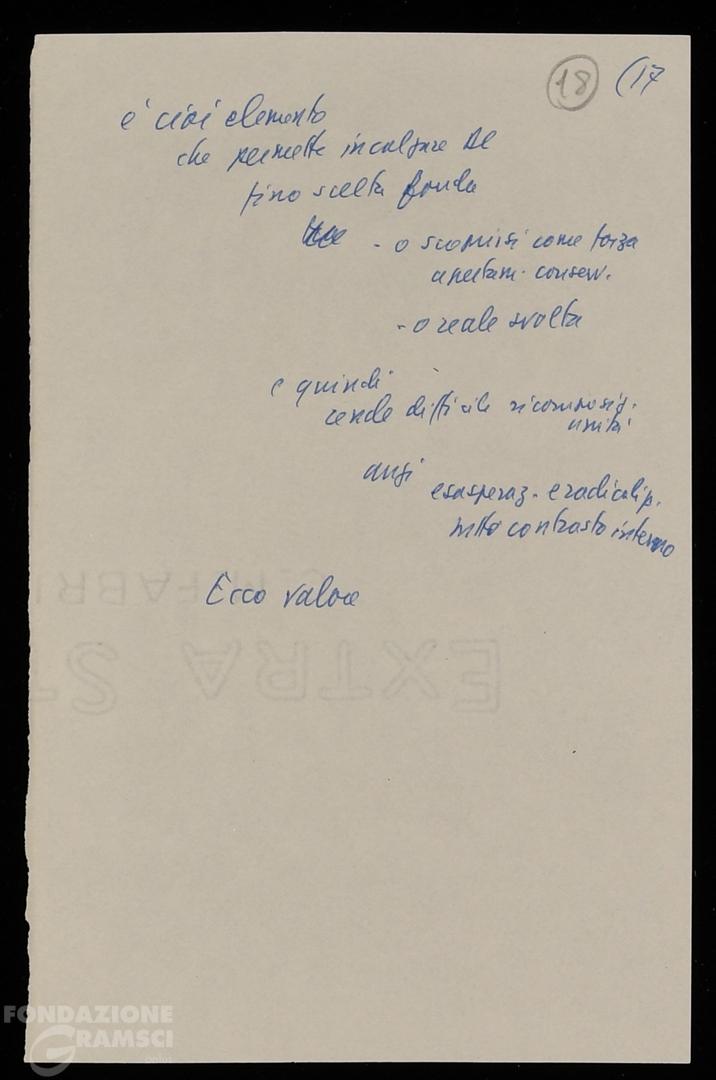 18 (17
è cioè elemento
che permette incalzare DC
fino scelta fonda
- o scoprirsi come forza
apertam. conserv.
- o reale svolta
e quindi
rende difficile ricomposiz.
unità
anzi
esasperaz. e radicalizz.
contrasto interno
Ecco valore
FABRI
EXTRA ST
FONDAZIONE
GRAMSCI
onlus